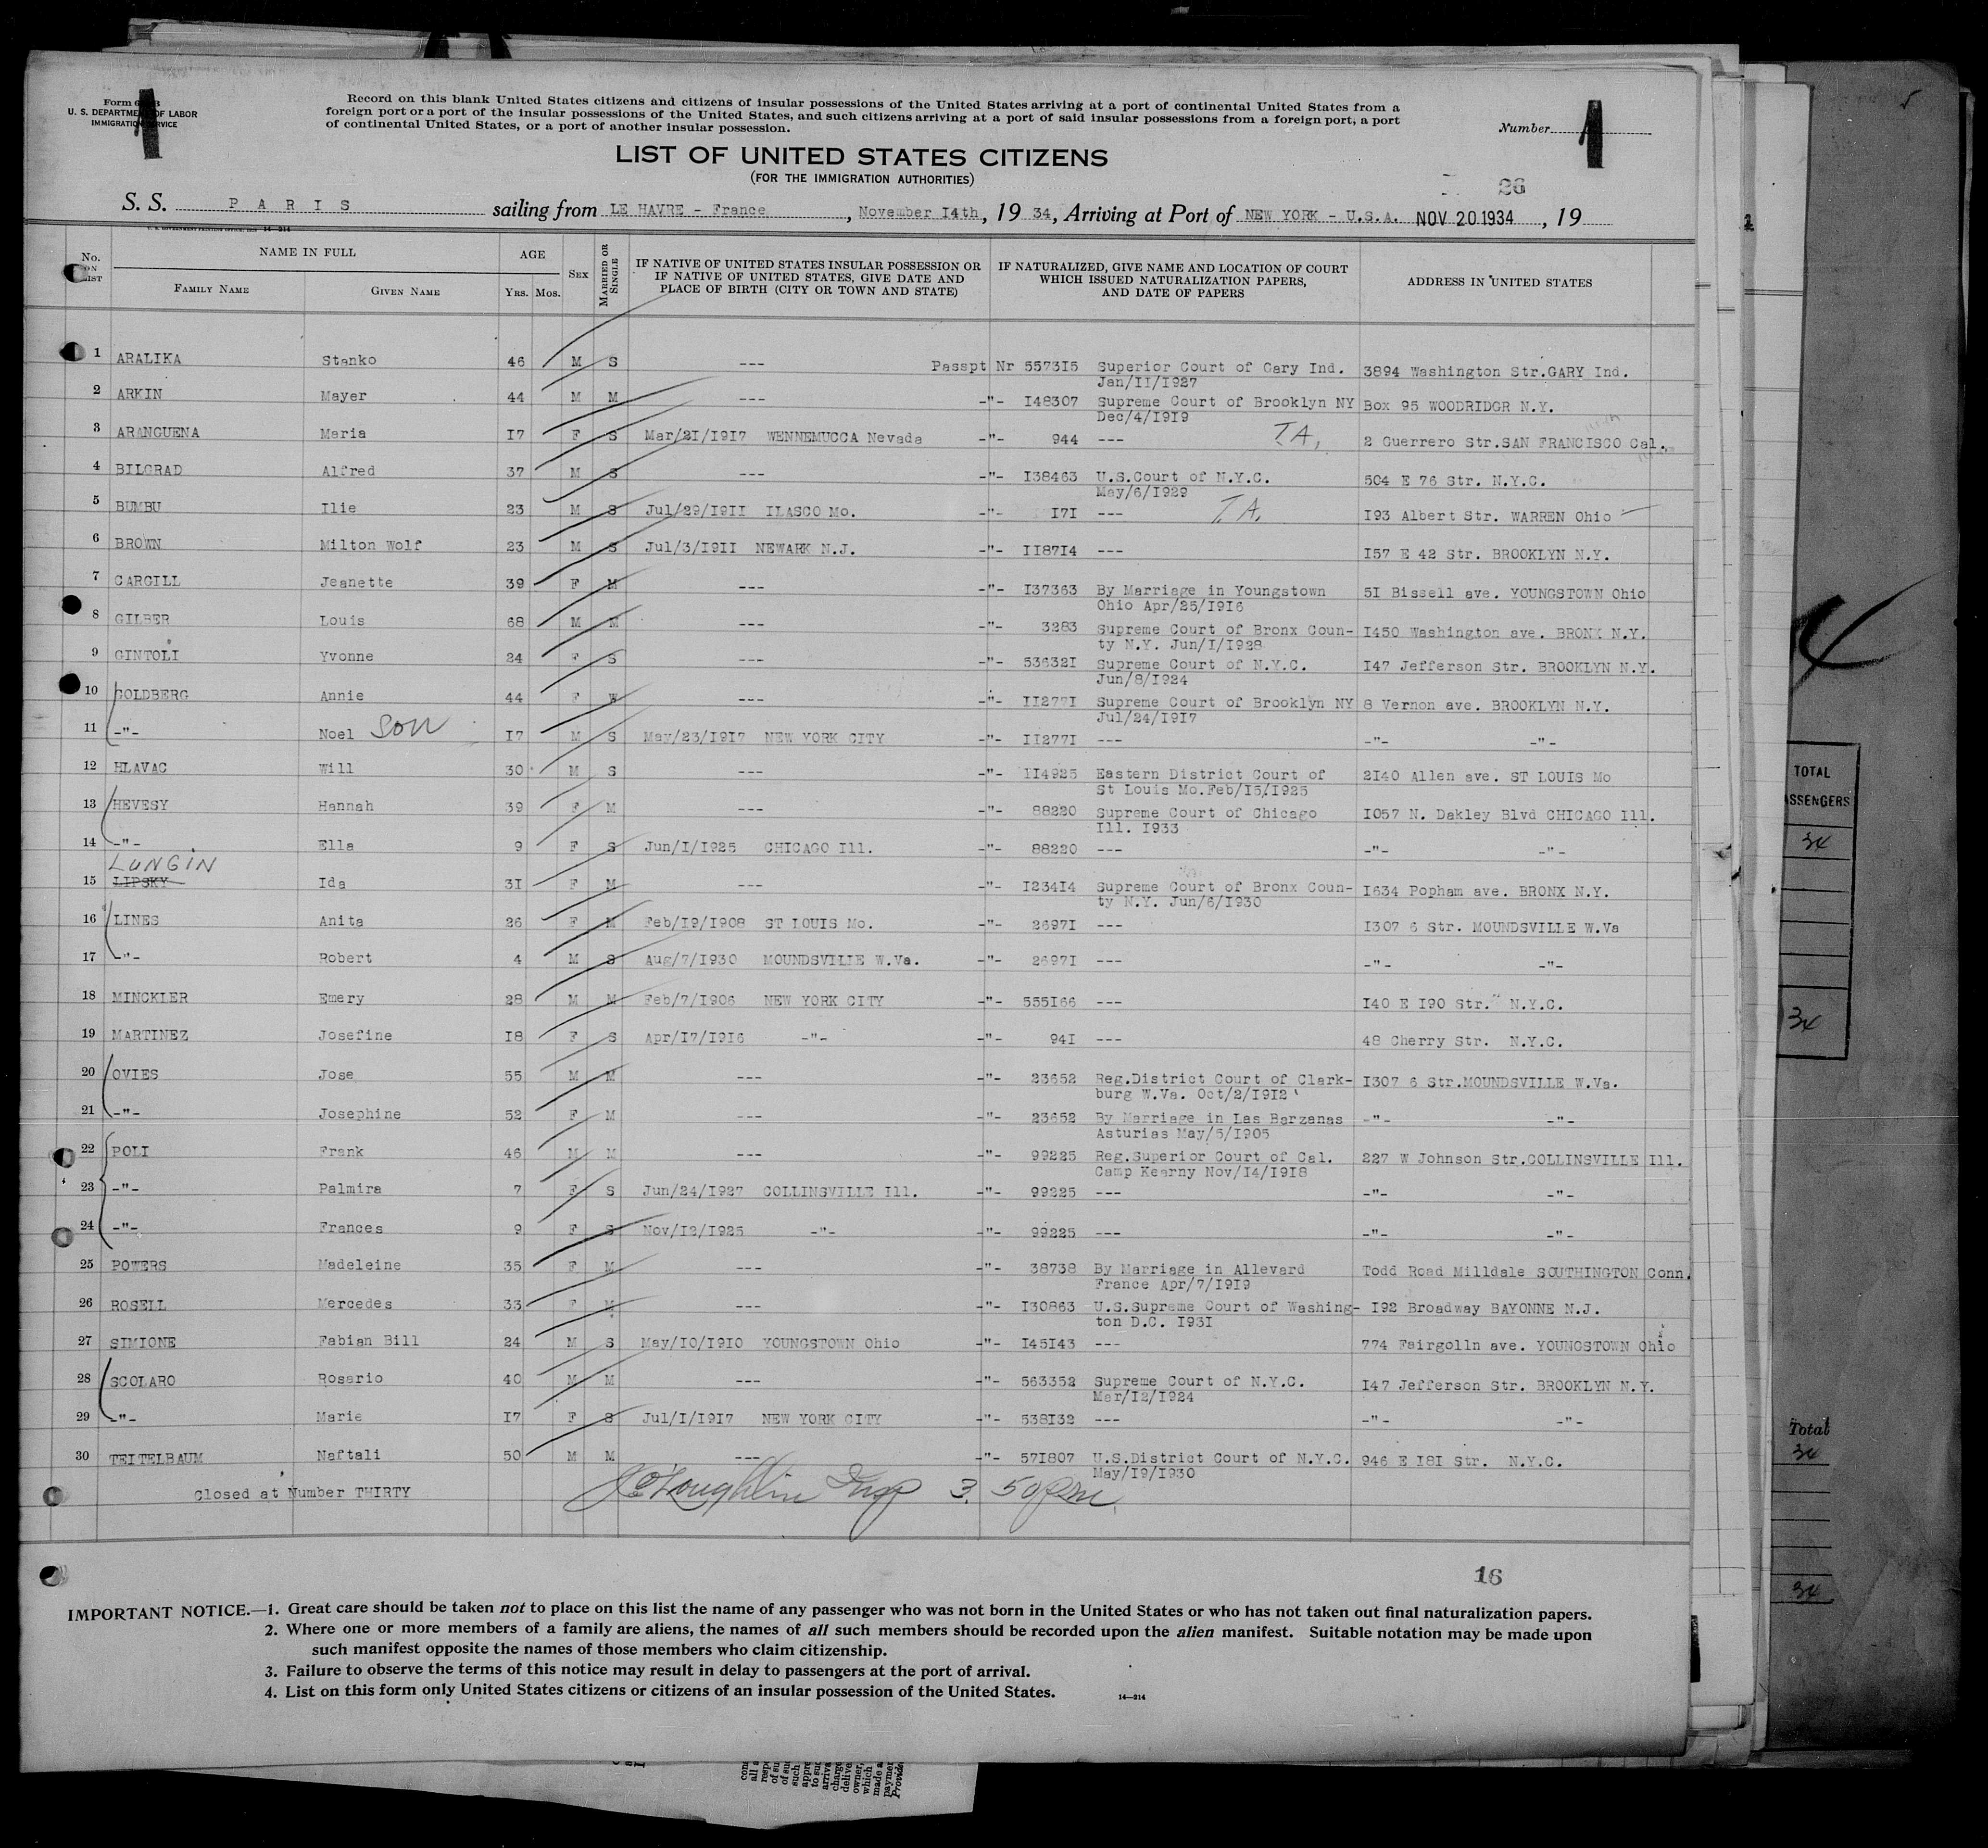 Form 6
U. S. DEPARTMENT OF LABOR
IMMIGRATION SERVICE
Record on this blank United States citizens and citizens of insular possessions of the United States arriving at a port of continental United States from a
foreign port or a port of the insular possessions of the United States, and such citizens arriving at a port of said insular possessions from a foreign port, a port
of continental United States, or a port of another insular possession.
Number
1
1
LIST OF UNITED STATES CITIZENS
(FOR THE IMMIGRATION AUTHORITIES)
26
S. S. PARIS sailing from LE HAVRE - France, November I4th, 19 34, Arriving at Port of NEW YORK - U.S.A. NOV 20 1934, 19
No. ON LIST NAME IN FULL AGE SEX MARRIED OR SINGLE IF NATIVE OF UNITED STATES INSULAR POSSESSION OR IF NATIVE OF UNITED STATES, GIVE DATE AND PLACE OF BIRTH (CITY OR TOWN AND STATE) IF NATURALIZED, GIVE NAME AND LOCATION OF COURT WHICH ISSUED NATURALIZATION PAPERS, AND DATE OF PAPERS ADDRESS IN UNITED STATES
FAMILY NAME GIVEN NAME YRS. MOS.
1 ARALIKA Stanko 46 M S --- Passpt Nr 5573I5 Superior Court of Gary Ind. 3894 Washington Str.GARY Ind.
Jan/II/I927
2 ARKIN Mayer 44 M M --- -"- I48307 Supreme Court of Brooklyn NY Box 95 WOODRIDGR N.Y.
Dec/4/I9I9
3 ARANGUENA Maria I7 F S Mar/2I/I9I7 WENNEMUCCA Nevada -"- 944 --- T.A. 2 Guerrero Str.SAN FRANCISCO Cal.
4 BILGRAD Alfred 37 M S --- -"- I38463 U.S.Court of N.Y.C. 504 E 76 Str. N.Y.C.
May/6/I929
5 BUMBU Ilie 23 M S Jul/29/I9II ILASCO Mo. -"- I7I --- T.A. I93 Albert Str. WARREN Ohio
6 BROWN Milton Wolf 23 M S Jul/3/I9II NEWARK N.J. -"- II87I4 --- I57 E 42 Str. BROOKLYN N.Y.
7 CARGILL Jeanette 39 F M --- -"- I37363 By Marriage in Youngstown 5I Bissell ave. YOUNGSTOWN Ohio
Ohio Apr/25/I9I6
8 GILBER Louis 68 M M --- -"- 3283 Supreme Court of Bronx Coun- I450 Washington ave. BRONX N.Y.
ty N.Y. Jun/I/I928
9 GINTOLI Yvonne 24 F S --- -"- 53632I Supreme Court of N.Y.C. I47 Jefferson Str. BROOKLYN N.Y.
Jun/8/I924
10 GOLDBERG Annie 44 F W --- -"- II277I Supreme Court of Brooklyn NY 8 Vernon ave. BROOKLYN N.Y.
Jul/24/I9I7
11 -"- Noel son I7 M S May/23/I9I7 NEW YORK CITY -"- II277I --- -"- -"-
12 HLAVAC Will 30 M S --- -"- II4925 Eastern District Court of 2I40 Allen ave. ST LOUIS Mo
St Louis Mo.Feb/I5/I925
13 HEVESY Hannah 39 F M --- -"- 88220 Supreme Court of Chicago I057 N. Oakley Blvd CHICAGO Ill.
Ill. I933
14 -"- Ella 9 F S Jun/I/I925 CHICAGO Ill. -"- 88220 --- -"- -"-
LUNGIN
15 LIPSKY Ida 3I F M --- -"- I234I4 Supreme Court of Bronx Coun- I634 Popham ave. BRONX N.Y.
ty N.Y. Jun/6/I930
16 LINES Anita 26 F M Feb/I9/I908 ST LOUIS Mo. -"- 2697I --- I307 6 Str. MOUNDSVILLE W.Va
17 -"- Robert 4 M S Aug/7/I930 MOUNDSVILLE W.Va. -"- 2697I --- -"- -"-
18 MINCKLER Emery 28 M M Feb/7/I906 NEW YORK CITY -"- 555I66 --- I40 E I90 Str. N.Y.C.
19 MARTINEZ Josefine I8 F S Apr/I7/I9I6 -"- -"- 94I --- 48 Cherry Str. N.Y.C.
20 OVIES Jose 55 M M --- -"- 23652 Reg.District Court of Clark- I307 6 Str.MOUNDSVILLE W.Va.
burg W.Va. Oct/2/I9I2
21 -"- Josephine 52 F M --- -"- 23652 By Marriage in Las Barzanas -"- -"-
Asturias May/5/I905
22 POLI Frank 46 M M --- -"- 99225 Reg.Superior Court of Cal. 227 W Johnson Str.COLLINSVILLE Ill.
Camp Kearny Nov/I4/I9I8
23 -"- Palmira 7 F S Jun/24/I927 COLLINSVILLE Ill. -"- 99225 --- -"- -"-
24 -"- Frances 9 F S Nov/I2/I925 -"- -"- 99225 --- -"- -"-
25 POWERS Madeleine 35 F M --- -"- 38738 By Marriage in Allevard Todd Road Milldale SOUTHINGTON Conn.
France Apr/7/I9I9
26 ROSELL Mercedes 33 F M --- -"- I30863 U.S.Supreme Court of Washing- I92 Broadway BAYONNE N.J.
ton D.C. I93I
27 SIMIONE Fabian Bill 24 M S May/I0/I9I0 YOUNGSTOWN Ohio -"- I45I43 --- 774 Fairgolln ave. YOUNGSTOWN Ohio
28 SCOLARO Rosario 40 M M --- -"- 563352 Supreme Court of N.Y.C. I47 Jefferson Str. BROOKLYN N.Y.
Mar/I2/I924
29 -"- Marie I7 F S Jul/I/I9I7 NEW YORK CITY -"- 538I32 --- -"- -"-
30 TEITELBAUM Naftali 50 M M --- -"- 57I807 U.S.District Court of N.Y.C. 946 E I8I Str. N.Y.C.
May/I9/I930
Closed at Number THIRTY
Insp 3.50 pm
16
IMPORTANT NOTICE.—1. Great care should be taken not to place on this list the name of any passenger who was not born in the United States or who has not taken out final naturalization papers.
2. Where one or more members of a family are aliens, the names of all such members should be recorded upon the alien manifest. Suitable notation may be made upon
such manifest opposite the names of those members who claim citizenship.
3. Failure to observe the terms of this notice may result in delay to passengers at the port of arrival.
4. List on this form only United States citizens or citizens of an insular possession of the United States.
14—214
4
TOTAL
34
34
Total
34
34